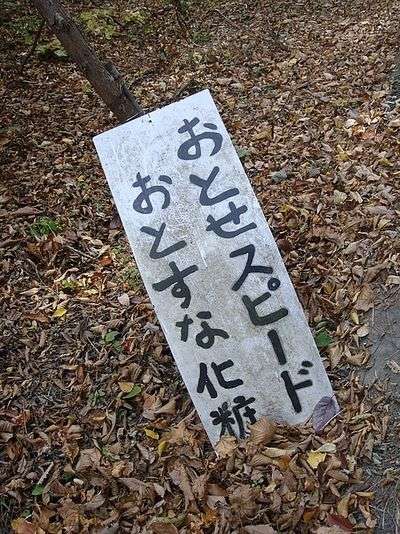 おとせスピード
おとすな化粧